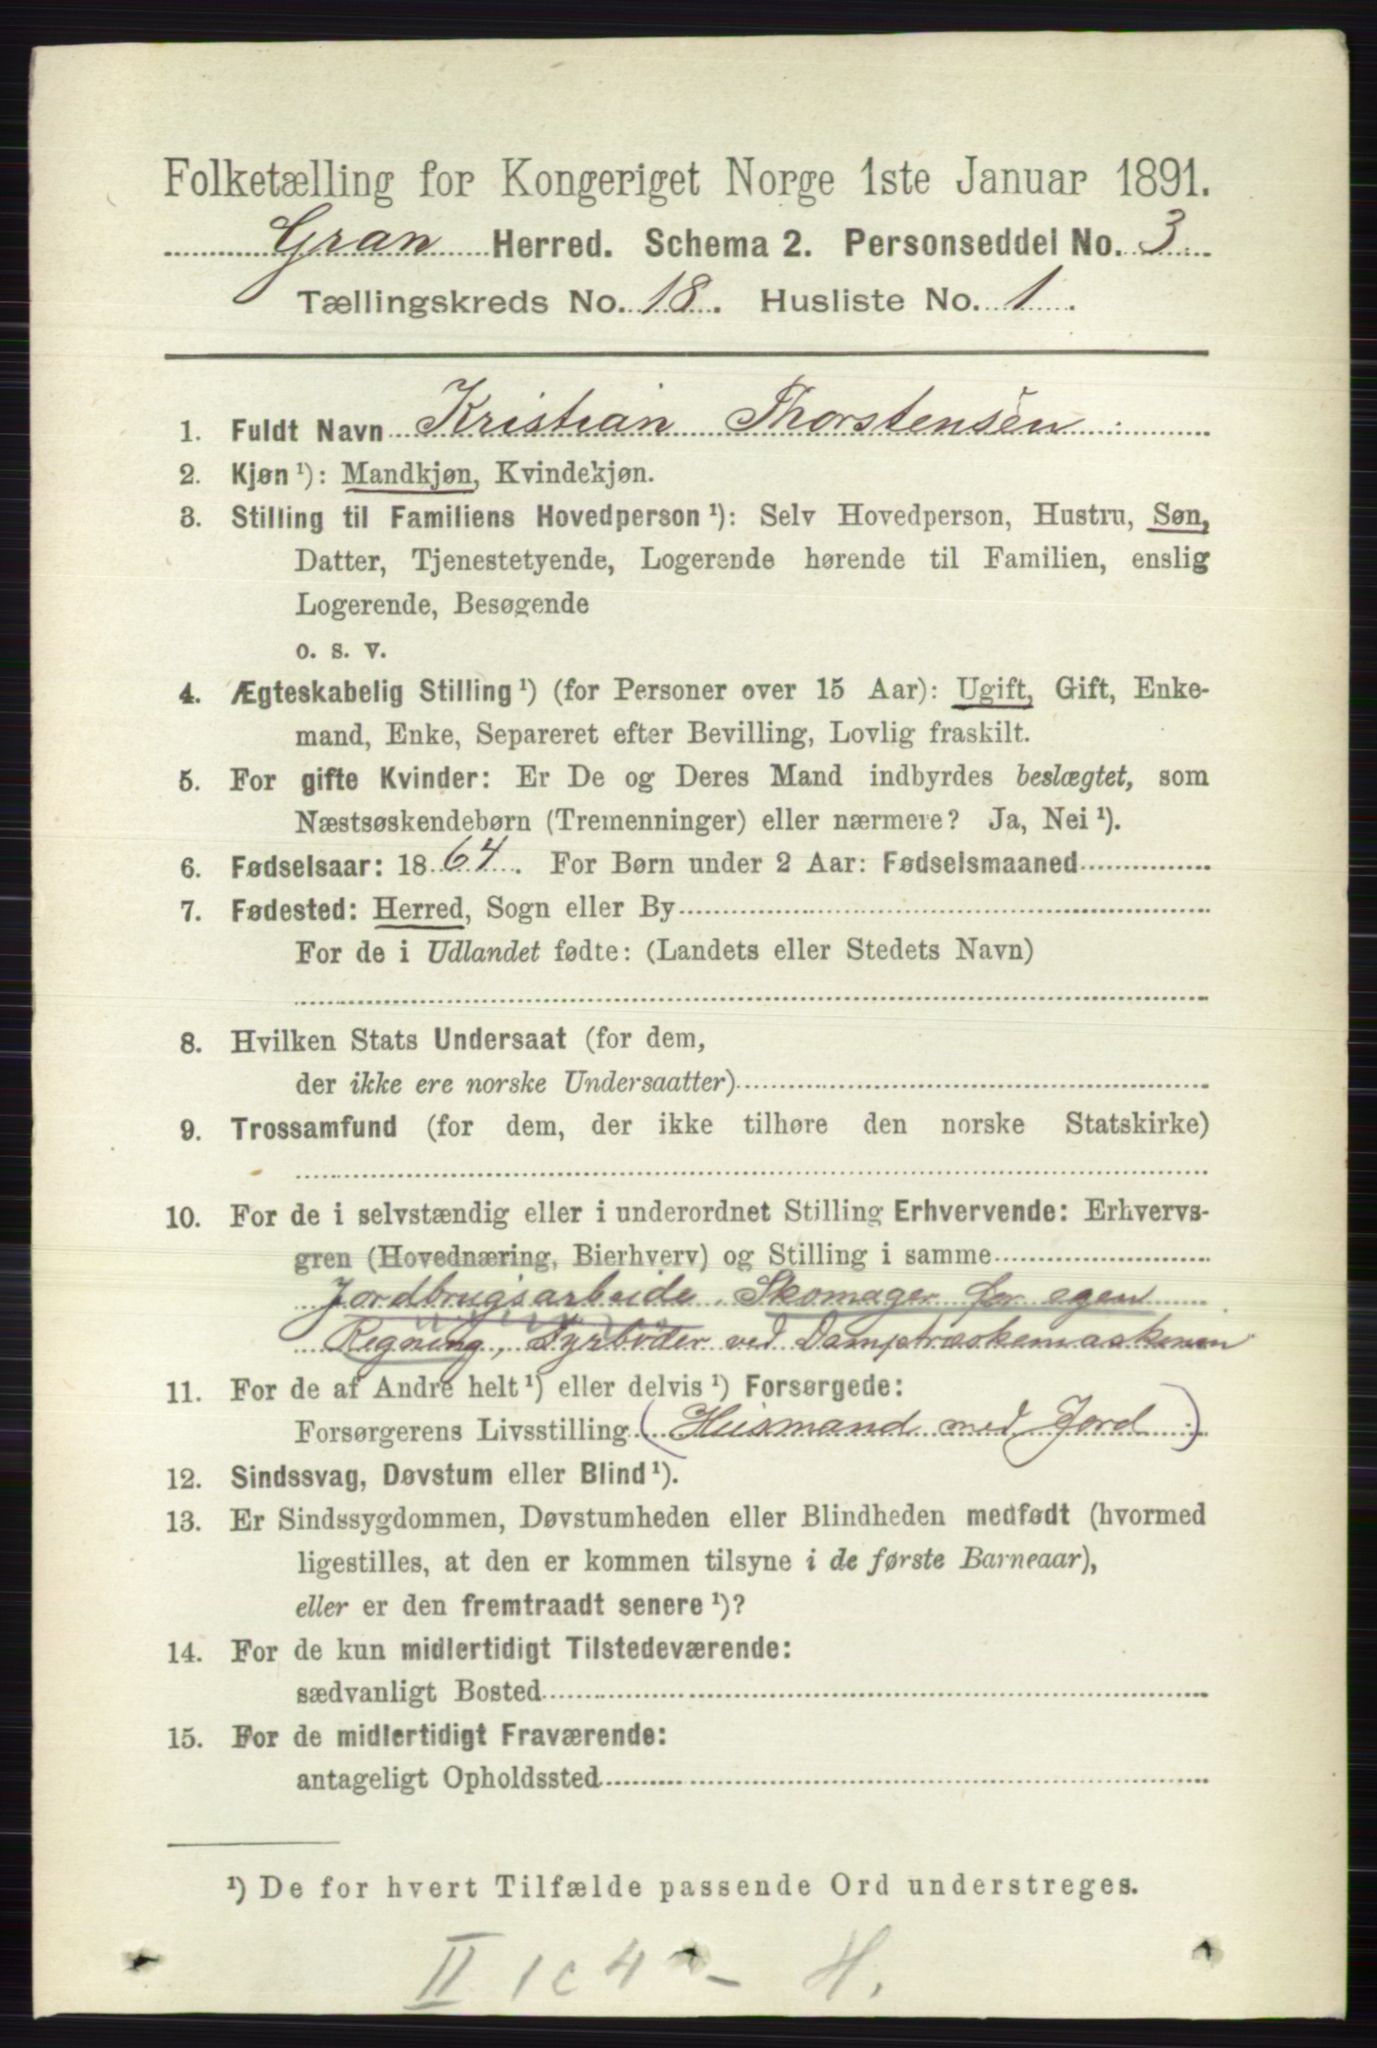 Folketælling for Kongeriget Norge 1ste Januar 1891.
Gran Herred. Schema 2. Personseddel No. 3.
Tællingskreds No. 18. Husliste No. 1.
1. Fuldt Navn Kristian Thorstensen
2. Kjøn ¹): Mandkjøn, Kvindekjøn.
3. Stilling til Familiens Hovedperson ¹): Selv Hovedperson, Hustru, Søn,
Datter, Tjenestetyende, Logerende hørende til Familien, enslig
Logerende, Besøgende
o. s. v.
4. Ægteskabelig Stilling ¹) (for Personer over 15 Aar): Ugift, Gift, Enke-
mand, Enke, Separeret efter Bevilling, Lovlig fraskilt.
5. For gifte Kvinder: Er De og Deres Mand indbyrdes beslægtet, som
Næstsøskendebørn (Tremenninger) eller nærmere? Ja, Nei ¹).
6. Fødselsaar: 1864. For Børn under 2 Aar: Fødselsmaaned
7. Fødested: Herred, Sogn eller By
For de i Udlandet fødte: (Landets eller Stedets Navn)
8. Hvilken Stats Undersaat (for dem,
der ikke ere norske Undersaatter)
9. Trossamfund (for dem, der ikke tilhøre den norske Statskirke)
10. For de i selvstændig eller i underordnet Stilling Erhvervende: Erhvervs-
gren (Hovednæring, Bierhverv) og Stilling i samme
Jordbrugsarbeide. Skomager for egen
Regning, Fyrbøder ved Damptræskemaskenen
11. For de af Andre helt ¹) eller delvis ¹) Forsørgede:
Forsørgerens Livsstilling (Husmand med Jord)
12. Sindssvag, Døvstum eller Blind ¹).
13. Er Sindssygdommen, Døvstumheden eller Blindheden medfødt (hvormed
ligestilles, at den er kommen tilsyne i de første Barneaar),
eller er den fremtraadt senere ¹)?
14. For de kun midlertidigt Tilstedeværende:
sædvanligt Bosted
15. For de midlertidigt Fraværende:
antageligt Opholdssted
¹) De for hvert Tilfælde passende Ord understreges.
II 1c 4 - H.